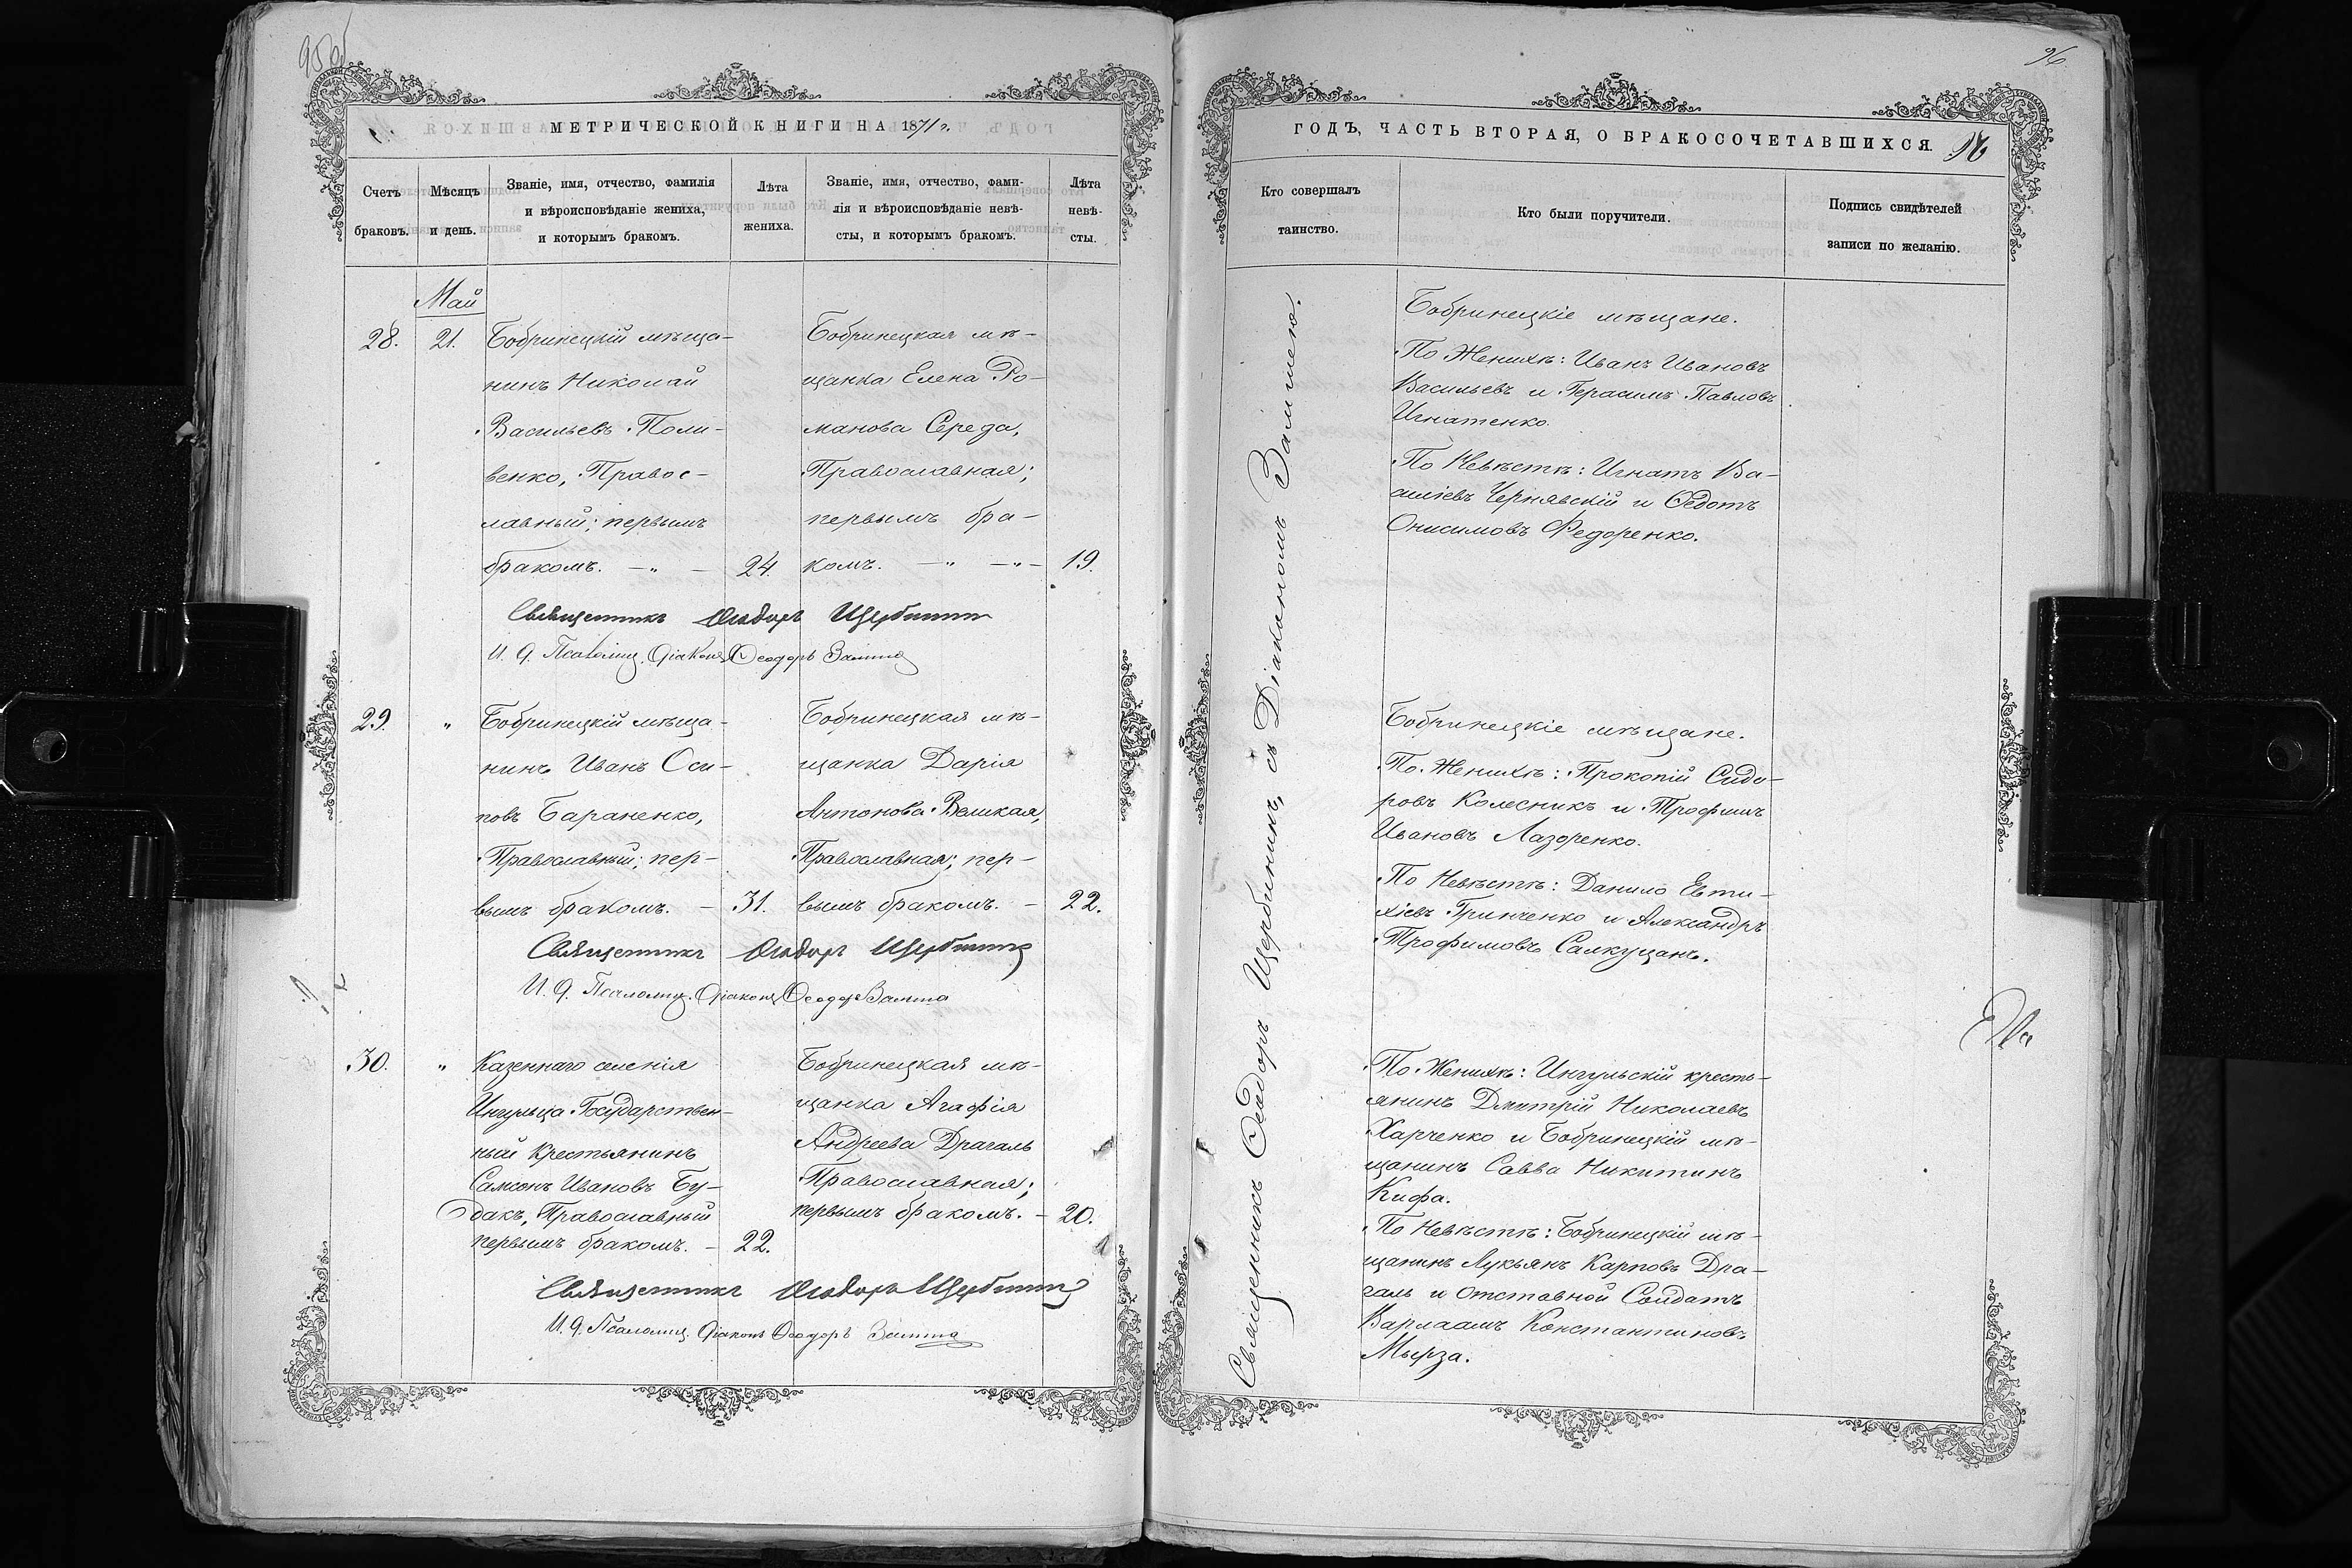 МЕТРИЧЕСКОЙ КНИГИ НА 1871 г.
Счетъ браковъ.
Мѣсяцъ и день.
Званіе, имя, отчество, фамилія
и вѣроисповѣданіе жениха,
и которымъ бракомъ.
Лѣта
жениха.
Званіе, имя, отчество, фами-
лія и вѣроисповѣданіе невѣ-
сты, и которымъ бракомъ.
Лѣта
невѣ-
сты.
Май
28.
21.
Бобринецкій мѣща-
нинъ Николай
Васильевъ Поли-
венко, Правос-
лавный; первымъ
бракомъ. — " —
24.
Бобринецкая мѣ-
щанка Елена Ро-
манова Середа,
Православная;
первымъ бра-
комъ. — " — " —
19.
Священникъ Ѳеодоръ Щербина
И. д. Псаломщ. Діаконъ Ѳеодоръ Замша
29.
"
Бобринецкій мѣща-
нинъ Иванъ Оси-
повъ Бараненко,
Православный; пер-
вымъ бракомъ. —
31.
Бобринецкая мѣ-
щанка Дарія
Антонова Великая,
Православная; пер-
вымъ бракомъ. —
22.
Священникъ Ѳеодоръ Щербина
И. д. Псаломщ. Діаконъ Ѳеодоръ Замша
30.
"
Казеннаго селенія
Ингульца Государствен-
ный крестьянинъ
Самсонъ Ивановъ Бу-
дакъ, Православный
первымъ бракомъ. —
22.
Бобринецкая мѣ-
щанка Агафія
Андреева Драгаль
Православная;
первымъ бракомъ. —
20.
Священникъ Ѳеодоръ Щербина
И. д. Псаломщ. Діаконъ Ѳеодоръ Замша
96
ГОДЪ, ЧАСТЬ ВТОРАЯ, О БРАКОСОЧЕТАВШИХСЯ.
96
Кто совершалъ
таинство.
Кто были поручители.
Подпись свидѣтелей
записи по желанію.
Священникъ Ѳеодоръ Щербининъ, съ Діакономъ Замшею.
Бобринецкіе мѣщане.
По Женихѣ: Иванъ Ивановъ
Васильевъ и Герасимъ Павловъ
Игнатенко.
По Невѣстѣ: Игнатъ Ва-
силіевъ Чернявскій и Ѳедотъ
Онисимовъ Федоренко.
Бобринецкіе мѣщане.
По Женихѣ: Прокопій Сидо-
ровъ Колесникъ и Трофимъ
Ивановъ Лазоренко.
По Невѣстѣ: Данило Евти-
хіевъ Гринченко и Александръ
Трофимовъ Салкуцанъ.
По Женихѣ: Ингульскій кресть-
янинъ Дмитрій Николаевъ
Харченко и Бобринецкій мѣ-
щанинъ Савва Никитинъ
Кифа.
По Невѣстѣ: Бобринецкій мѣ-
щанинъ Лукьянъ Карповъ Дра-
галь и Отставной Солдатъ
Варлаамъ Константиновъ
Мырза.